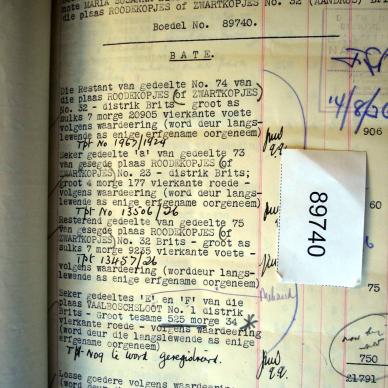 note MARIA SUSANNA
die plaas ROODEKOPJES of ZWARTKOPJES No. 32
Boedel No. 89740.
BATE.
Die Restant van gedeelte No. 74 van
die plaas ROODEKOPJES (of ZWARTKOPJES)
No. 32 - distrik Brits - groot as
sulks 7 morge 20905 vierkante voete
volgens waardeering (word deur langs-
lewende as enige erfgename oorgeneem)
Tpt No 1967/1924
Seker gedeelte 'a' van gedeelte 73
van gesegde plaas ROODEKOPJES (of
ZWARTKOPJES) No. 23 - distrik Brits;
groot 4 morge 177 vierkante roede -
volgens waardeering (word deur langs-
lewende as enige erfgenaam oorgeneem)
Tpt No 13506/26
Resterend gedeelte van gedeelte 75
van gesegde plaas ROODEKOPJES (of
ZWARTKOPJES) No. 32 Brits - groot as
sulks 7 morge 9235 vierkante voete -
Tpt 13457/26
volgens waardeering (worddeur langs-
lewende as enige erfgenaam oorgeneem)
Seker gedeeltes 'E' en 'F' van die
plaas TAALBOSCHSLOOT No. 1 distrik
Brits - Groot tesame 525 morge 34
vierkante roede - volgens waardeering
(word deur die langslewende as enige
erfgenaam oorgeneem)
Tpt Nog te word geregistreerd.
Losse goedere volgens waardeering
14/8/26
906
89740
750
21791